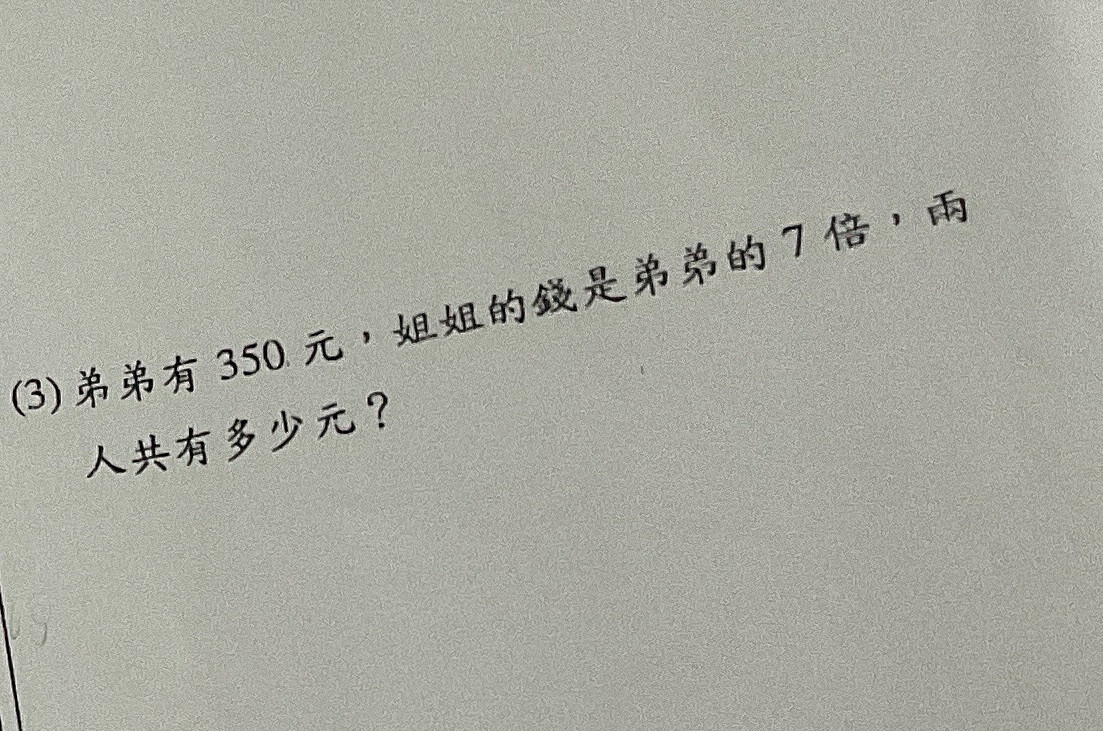 (3) 弟弟有 350 元，姐姐的錢是弟弟的 7 倍，兩
人共有多少元？